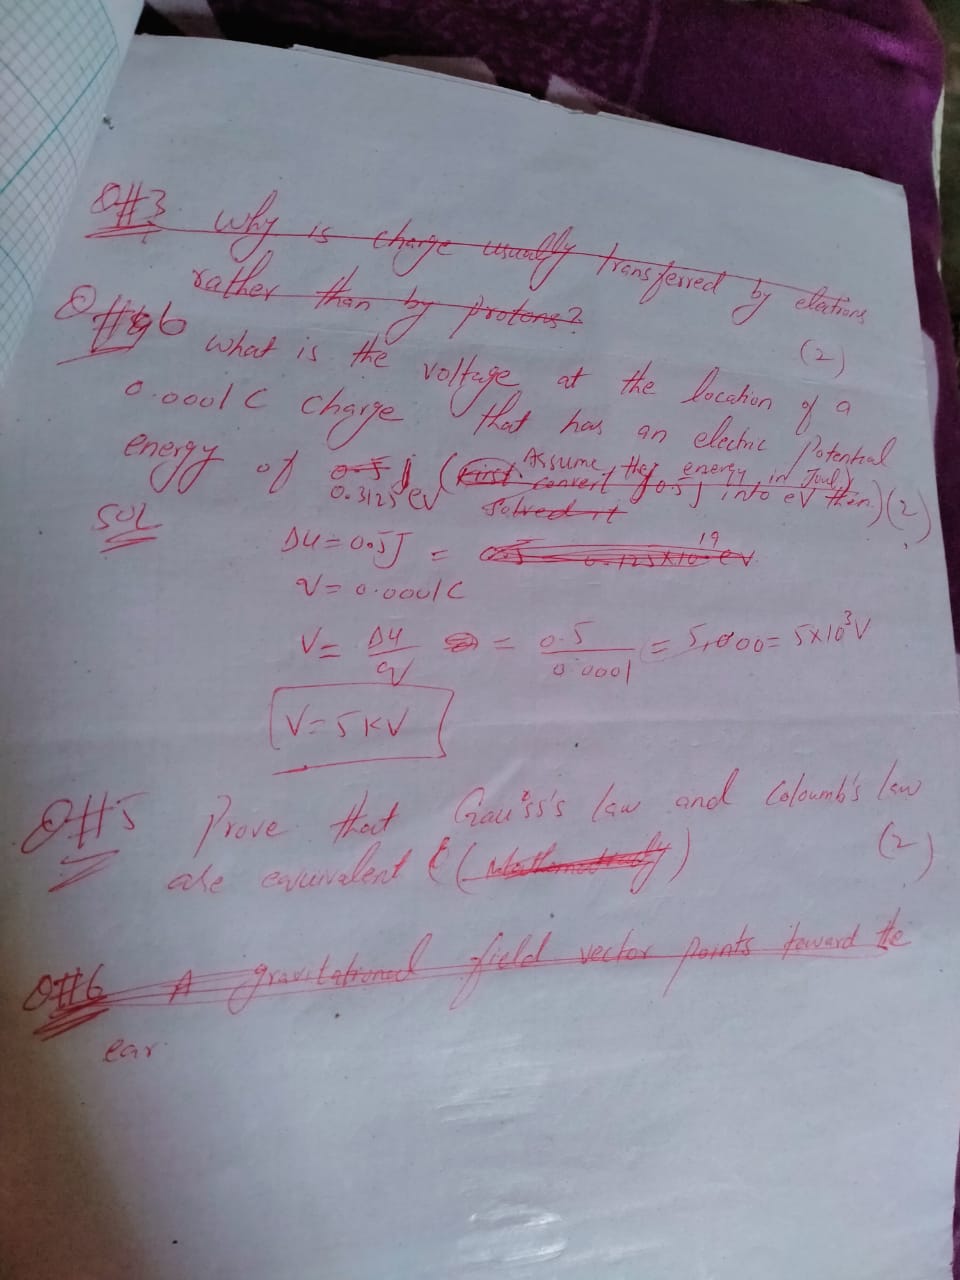 Q#3 Why is charge usually transferred by elections
rather than by protons?
(2)
Q#6 what is the voltage at the location of a
0.0001 C charge that has an electric Potential
energy of 0.5 J (First Assume the energy in Joul
0.3125 eV convert 0.5 J into eV then) (2)
Solved it
SOL
ΔU = 0.5J = 0.5 0.125x10^19 eV
q = 0.0001C
V = ΔU/q = 0.5/0.0001 = 5,000 = 5x10^3 V
V = 5 KV
Q#5 Prove that Gauss's law and Coloumb's law
are equivalent (Mathematically) (2)
Q#6 A gravitational field vector points toward the
ear